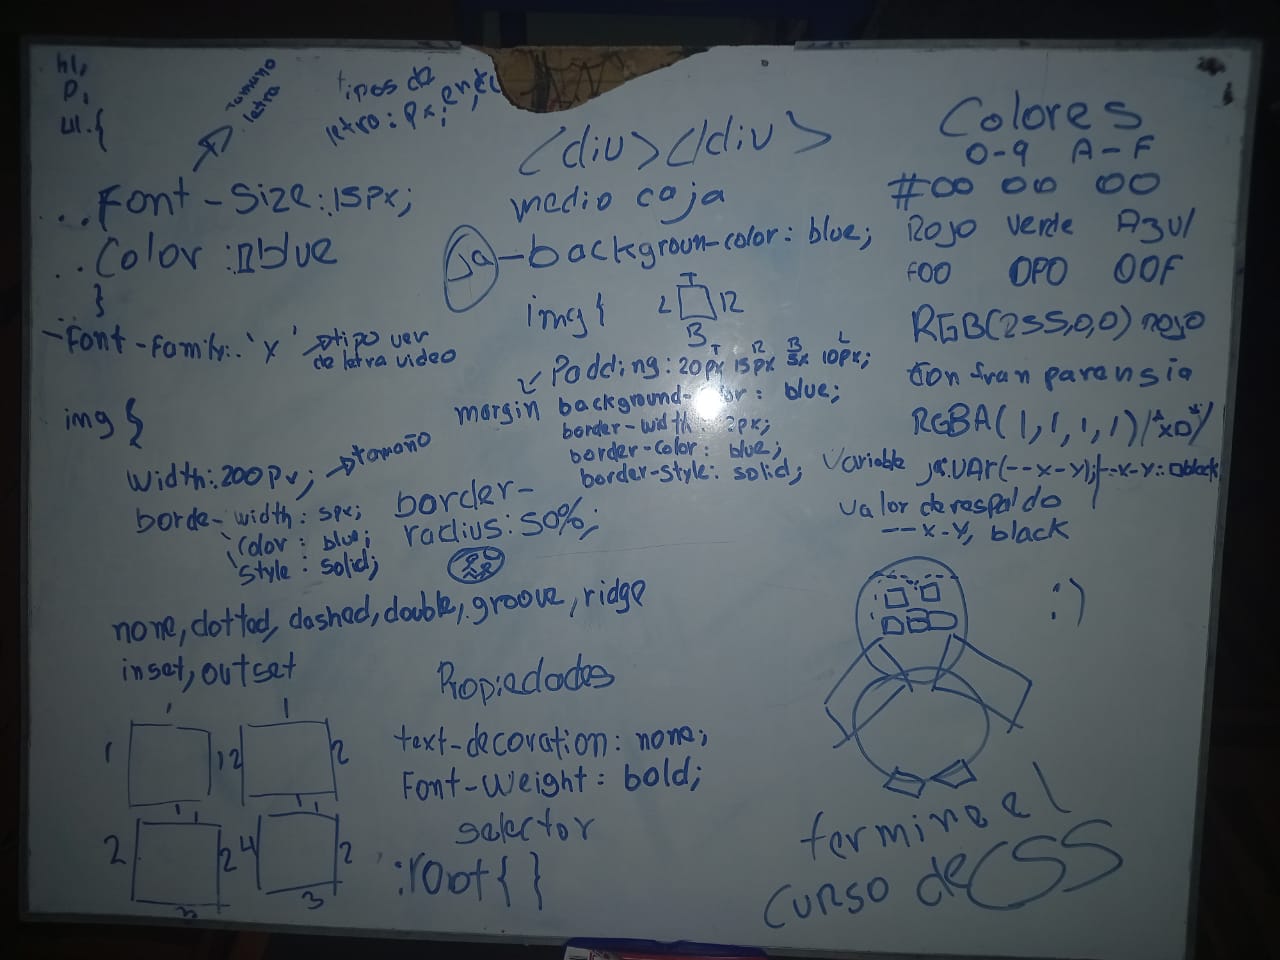 h1,
p,
ul.{
Tamaño
letra
tipos de
letra: px;
.. Font-Size: 15px;
.. Color: blue
}
-Font-Family: 'x' → tipo ver
de letra video
img {
width: 200px; → tamaño
borde-width: 5px;
color: blue;
style: solid;
border-
radius: 50%;
none, dotted, dashed, double, groove, ridge
inset, outset
1
1 1
1
2 2
1 1
2 2
3
1 1
4 2
3
<div></div>
medio caja
-backgroun-color: blue;
img {
T
2 12
B
T R B L
Padding: 20px 15px 5x 10px;
margin
background-color: blue;
border-width: 2px;
border-color: blue;
border-style: solid;
Propiedades
text-decoration: none;
Font-Weight: bold;
selector
:root{ }
Colores
0-9 A-F
#00 00 00
Rojo Verde Azul
F00 0F0 00F
RGB(255,0,0) rojo
con tranparensia
RGBA(1,1,1,1)
Variable
var(--x-y);
--x-y: black
valor de respaldo
--x-y, black
:)
termine el
curso de CSS